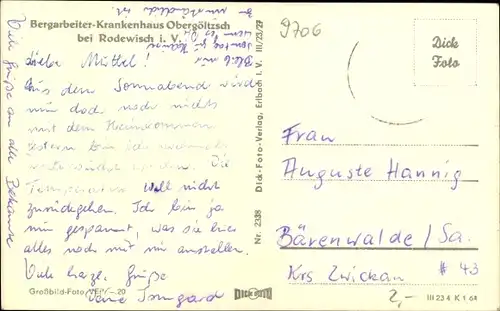 Bergarbeiter-Krankenhaus Obergöltzsch
bei Rodewisch i. V.
Liebe Mutti!
Aus dem Sonnabend wird
nun doch noch nichts
mit dem Heimkommen
gestern bin ich nochmals
untersucht worden. Die
Temperatur will nicht
zurückgehen. Ich bin ja
nur gespannt, was sie hier
alles noch mit mir anstellen.
Viele herzl. Grüße
Deine Irmgard
Viele Grüße an alle Bekannte
Großbild-Foto VEP/—.20
Nr. 2338 Dick-Foto-Verlag, Erlbach i. V. III/23/27
DICK FOTO
9706
Dick
Foto
Frau
Auguste Hannig
Bärenwalde/Sa.
Krs Zwickau # 43
2,-
III 23 4 K 1 64